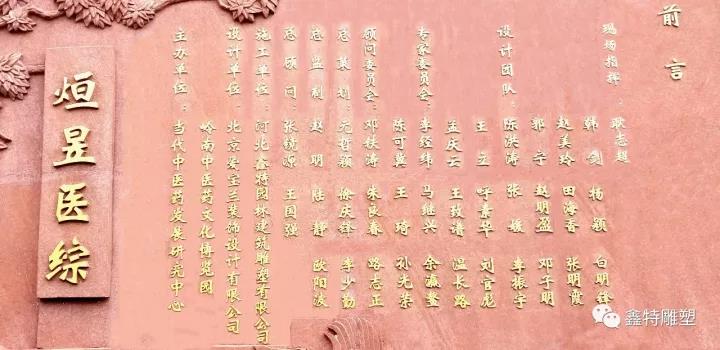 烜昱医综
主办单位：当代中医药发展研究中心
岭南中医药文化博览园
设计单位：北京爱玉兰装饰设计有限公司
施工单位：河北鑫特园林建筑雕塑有限公司
总顾问：张镜源 王国强
总监制：赵明 陆静 欧阳波
总策划：元哲颖 徐庆锋 李少勤
顾问委员会：邓铁涛 朱良春 路志正
陈可冀 王琦 孙光荣
专家委员会：李经纬 马继兴 余瀛鳌
孟庆云 王致谱 温长路
王立 呼素华 刘官彪
设计团队：陈洪涛 张媛 李振宇
郭宁 赵明盈 邓子明
赵美玲 田海香 张明霞
韩剑 杨颖 白明锋
现场指挥：耿志超
前言
鑫特雕塑